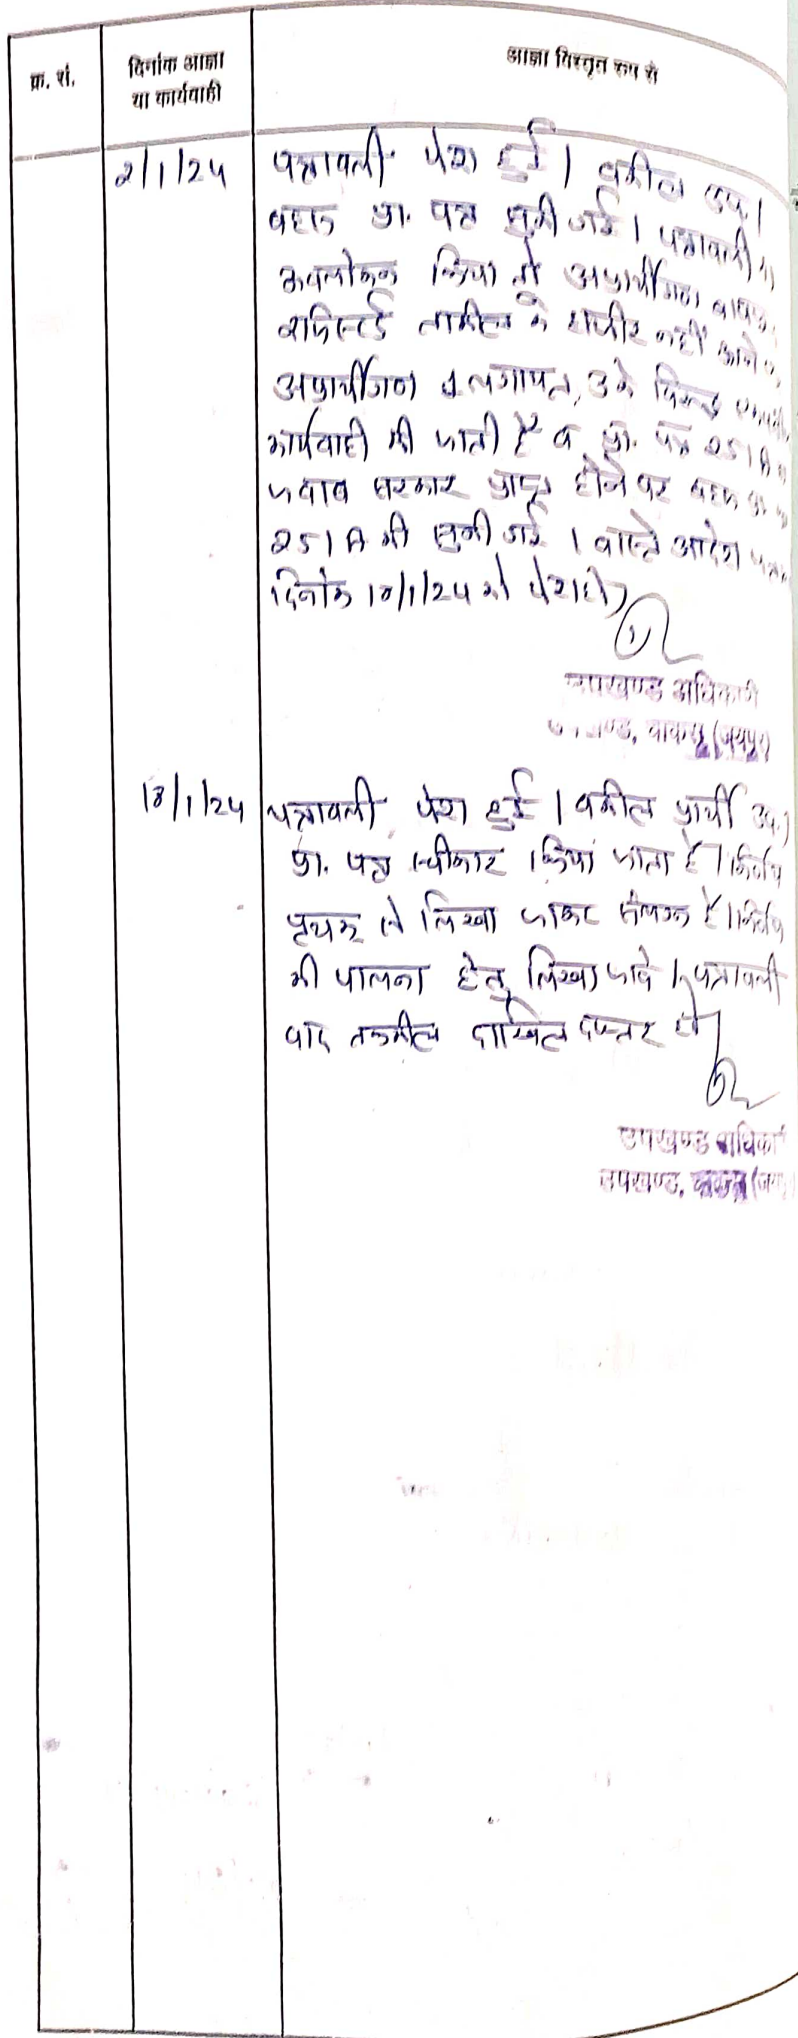 क्र. सं.
दिनांक आज्ञा
या कार्यवाही
आज्ञा विस्तृत रूप से
2/1/24
पत्रावली पेश हुई। वकील उप.।
बहस प्रा. पत्र सुनी गई। पत्रावली
अवलोकन किया तो अप्रार्थीगण
तामील के हाजीर नहीं आने
अप्रार्थीगण 1 लगायत
कार्यवाही की जाती है व प्रा. पत्र 251 A
जवाब सरकार प्राप्त होने पर बहस प्रा.
251 A की सुनी गई। वास्ते आदेश
दिनांक 18/1/24 को पेश हो
उपखण्ड अधिकारी
(जयपुर)
18/1/24
पत्रावली पेश हुई। वकील प्रार्थी उप.।
प्रा. पत्र स्वीकार किया जाता है। निर्णय
पृथक से लिखा जाकर संलग्न है। निर्णय
की पालना हेतु लिखा जावे। पत्रावली
बाद तकमील दाखिल दफ्तर हो
उपखण्ड
उपखण्ड,